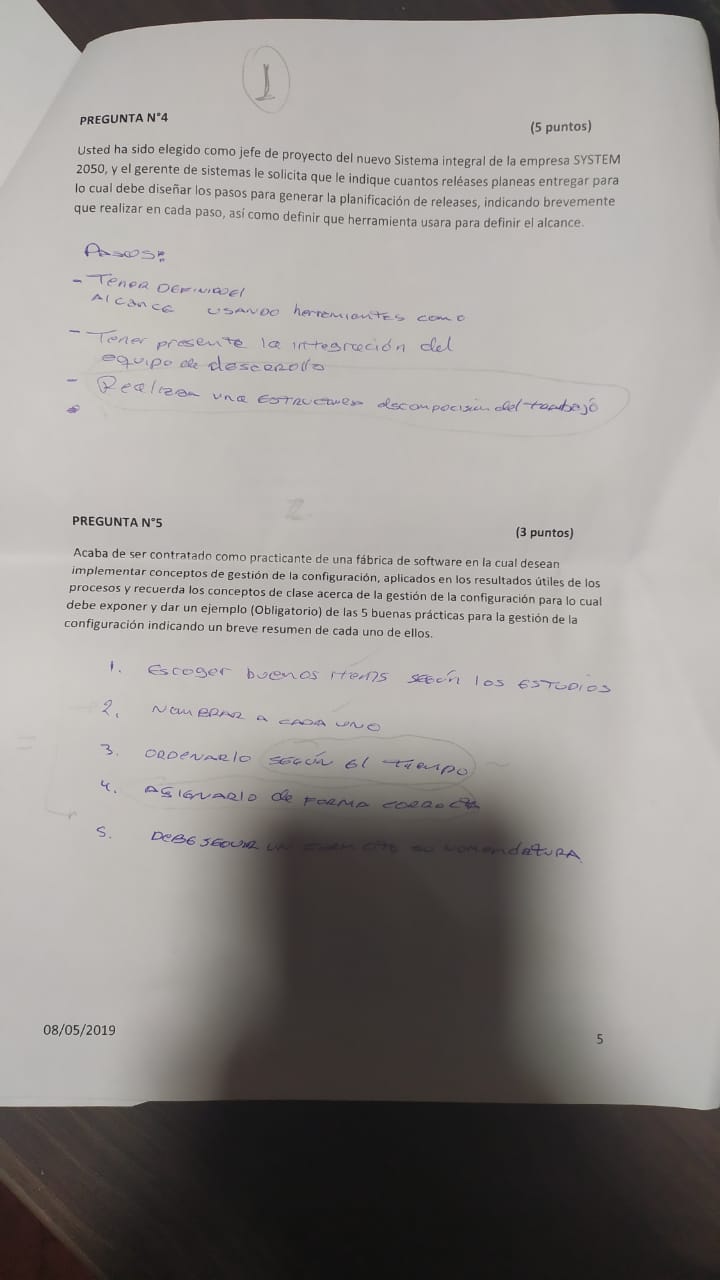 1
PREGUNTA N°4
(5 puntos)
Usted ha sido elegido como jefe de proyecto del nuevo Sistema integral de la empresa SYSTEM
2050, y el gerente de sistemas le solicita que le indique cuantos reléases planeas entregar para
lo cual debe diseñar los pasos para generar la planificación de releases, indicando brevemente
que realizar en cada paso, así como definir que herramienta usara para definir el alcance.
PASOS:
- Tener DEFINIDO el
Alcance USANDO herramientas como
- Tener presente la integración del
equipo de desarrollo
- Realizar una ESTRUCTURA descomposición del trabajo
2
PREGUNTA N°5
(3 puntos)
Acaba de ser contratado como practicante de una fábrica de software en la cual desean
implementar conceptos de gestión de la configuración, aplicados en los resultados útiles de los
procesos y recuerda los conceptos de clase acerca de la gestión de la configuración para lo cual
debe exponer y dar un ejemplo (Obligatorio) de las 5 buenas prácticas para la gestión de la
configuración indicando un breve resumen de cada uno de ellos.
1. Escoger buenos items SEGÚN los ESTUDIOS
2. NOMBRAR A CADA UNO
3. ORDENARlo SEGÚN El Tiempo
4. ASIGNARlo de FORMA CORRECTA
5. DEBE SEGUIR UN
08/05/2019
5